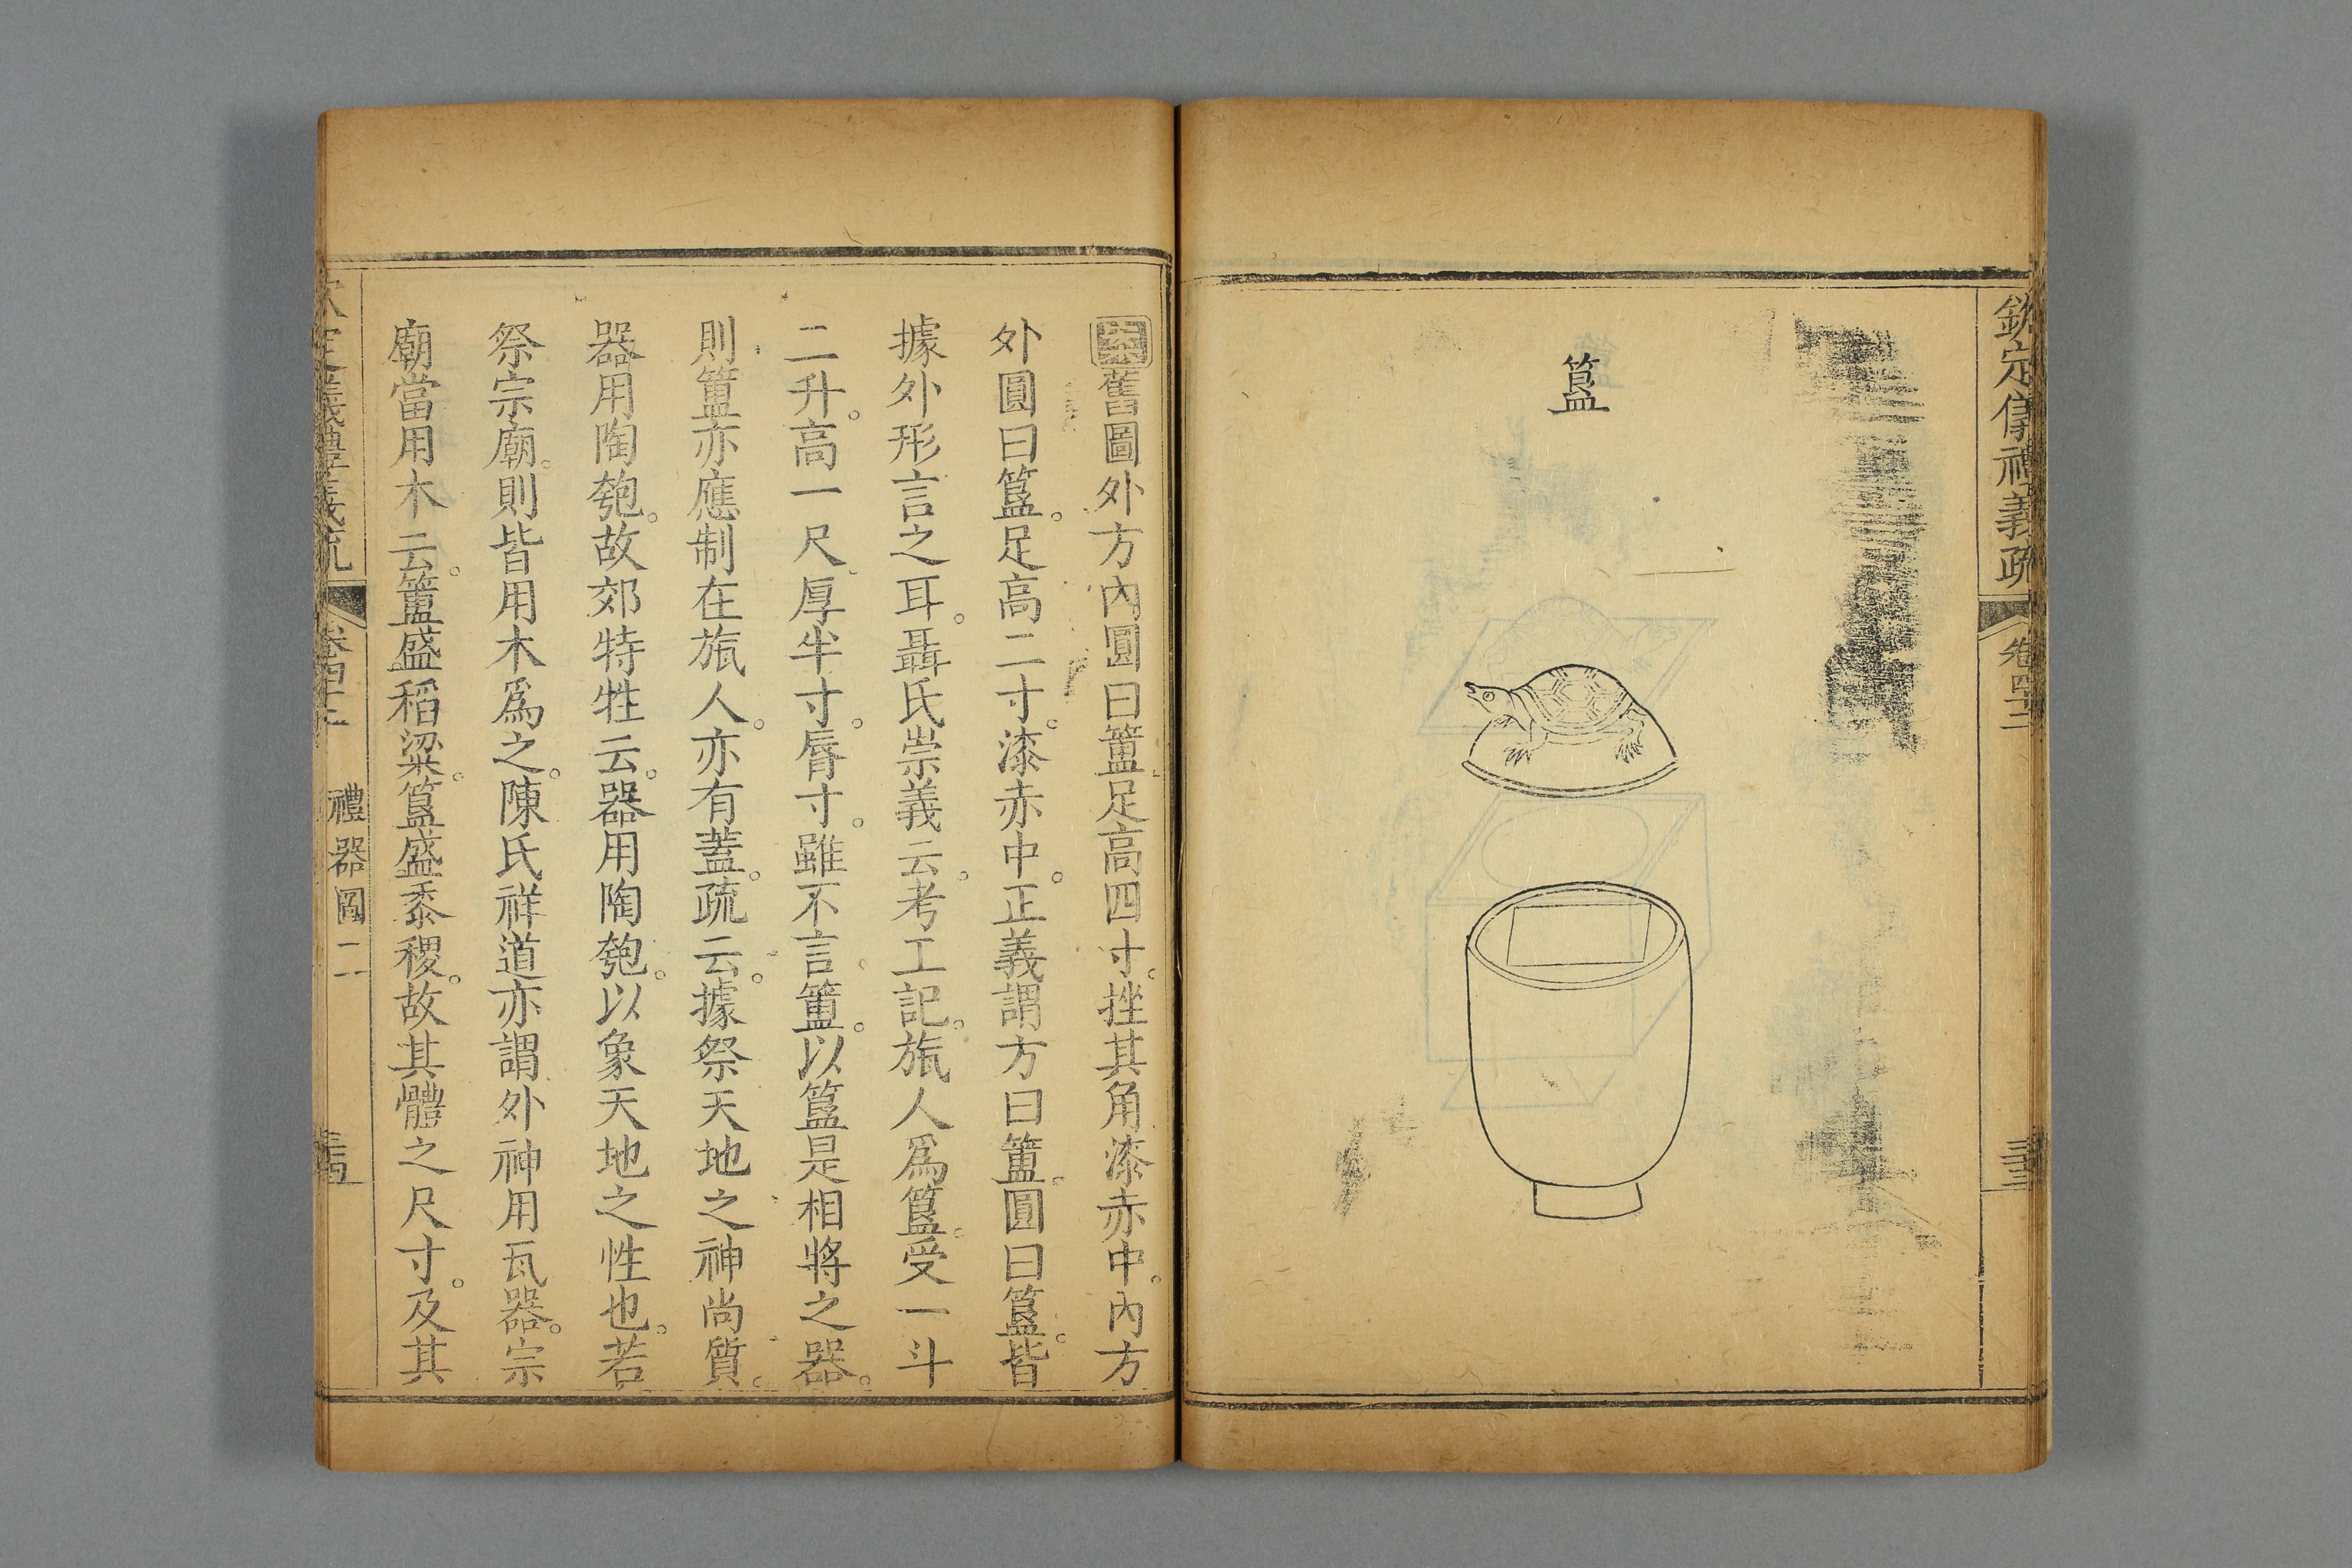 欽定儀禮義疏 卷四十二
簋
案舊圖外方內圓曰簠足高四寸挫其角漆赤中內方
外圓曰簋足高二寸漆赤中正義謂方曰簠圓曰簋皆
據外形言之耳聶氏崇義云考工記旊人爲簋受一斗
二升高一尺厚半寸脣寸雖不言簠以簋是相將之器
則簠亦應制在旊人亦有蓋疏云據祭天地之神尚質
器用陶匏故郊特牲云器用陶匏以象天地之性也若
祭宗廟則皆用木爲之陳氏祥道亦謂外神用瓦器宗
廟當用木云簠盛稻粱簋盛黍稷故其體之尺寸及其
欽定儀禮義疏 卷四十二 禮器圖二